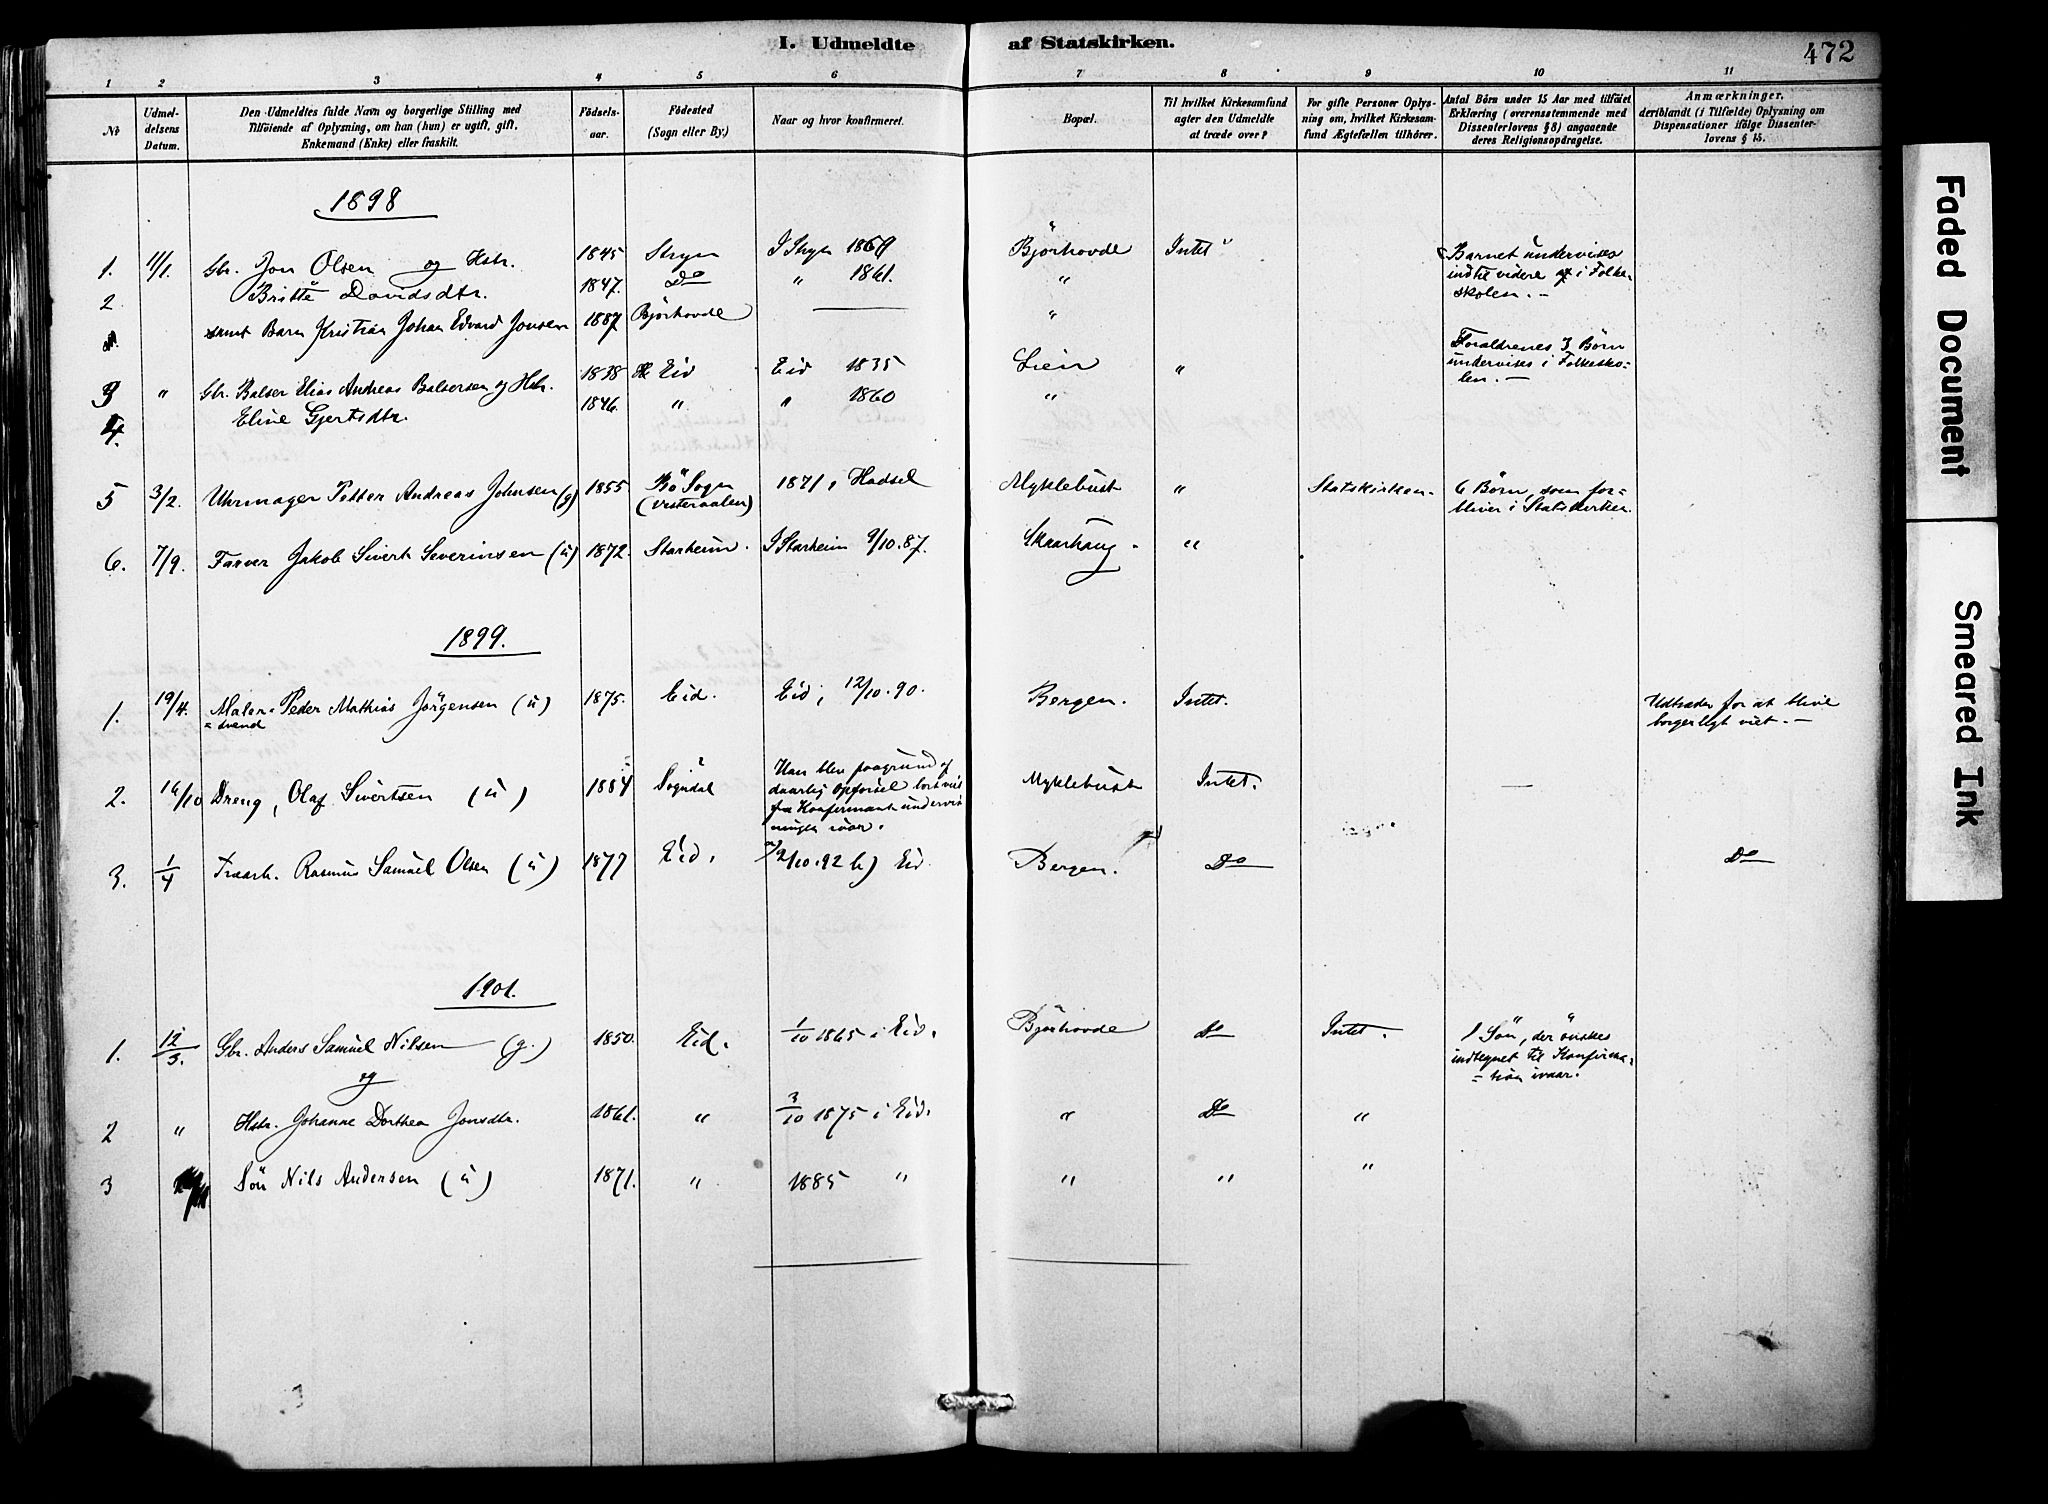 I. Udmeldte af Statskirken.
472
1 2 3 4 5 6 7 8 9 10 11
No
Udmel-
delsens
Datum.
Den Udmeldtes fulde Navn og borgerlige Stilling med
Tilföiende af Oplysning, om han (hun) er ugift, gift,
Enkemand (Enke) eller fraskilt.
Födsels-
aar.
Födested
(Sogn eller By.)
Naar og hvor konfirmeret.
Bopæl.
Til hvilket Kirkesamfund
agter den Udmeldte
at træde over?
For gifte Personer Oplys-
ning om, hvilket Kirkesam-
fund Ægtefællen tilhörer.
Antal Börn under 15 Aar med tilföiet
Erklæring (overensstemmende med
Dissenterlovens § 8) angaaende
deres Religionsopdragelse.
Anmærkninger,
deriblandt (i Tilfælde) Oplysning om
Dispensationer ifölge Dissenter-
lovens § 15.
1898
1. 11/1. Gbr. Jon Olsen og Hstr. 1845 Stryn I Stryn Bjørhovde Intet
2. Britte Davidsdtr. 1847. Do " 1861. "
samt Barn Kristian Johan Edvard Jonsen 1887 Bjørhovde — "
Barnet undervises
indtil videre i Folke-
skolen. —
3 " Gbr. Balser Elias Andreas Balsersen og Hstr. 1838 Eid Eid 1835 Lien "
4. Eline Gjertsdtr. 1846. " " 1860 "
Forældrenes 3 Børn
undervises i Folkesko-
len. —
5 3/2. Uhrmager Petter Andreas Johnsen (g) 1855 Bö Sogn 1871, Hadsel Myklebust " Statskirken. 6 Børn, som for-
(Vesteraalen) bliver i Statskirken.
6. 7/9. Farver Jakob Sivert Severinsen (u) 1872 Starheim. I Starheim 9/10.87. Skaarhaug. "
1899.
1. 19/4. Maler- Peder Mathias Jörgensen (u) 1875. Eid. Eid, 12/10.90. Bergen. Intet. Udtræder for at blive
= svend borgerligt viet. —
2. 16/10 Dreng, Olaf Sivertsen (u) 1884 Sogndal Han blev paagrund af Myklebust Intet. —
daarlig Opførsel bortvist
fra Konfirmantundervis
ningen ivaar.
3. 1/4 Traarb. Rasmus Samuel Olsen (u) 1877 Eid. 2/10.92 Eid Bergen. Do Do
1901.
1. 12/3. Gbr. Anders Samuel Nilsen (g.) 1850. Eid. 1/10 1865 i Eid. Bjørhovde Do Intet. 1 Sön, der önskes
og indtegnet til Konfirma-
= tion ivaar.
2 " Hstr. Johanne Dorthea Jonsdtr. 1861. " 3/10 1875 i Eid. " Do "
3 Sön Nils Andersen (u) 1871. " 1885 " " " "
Faded Document
Smeared Ink